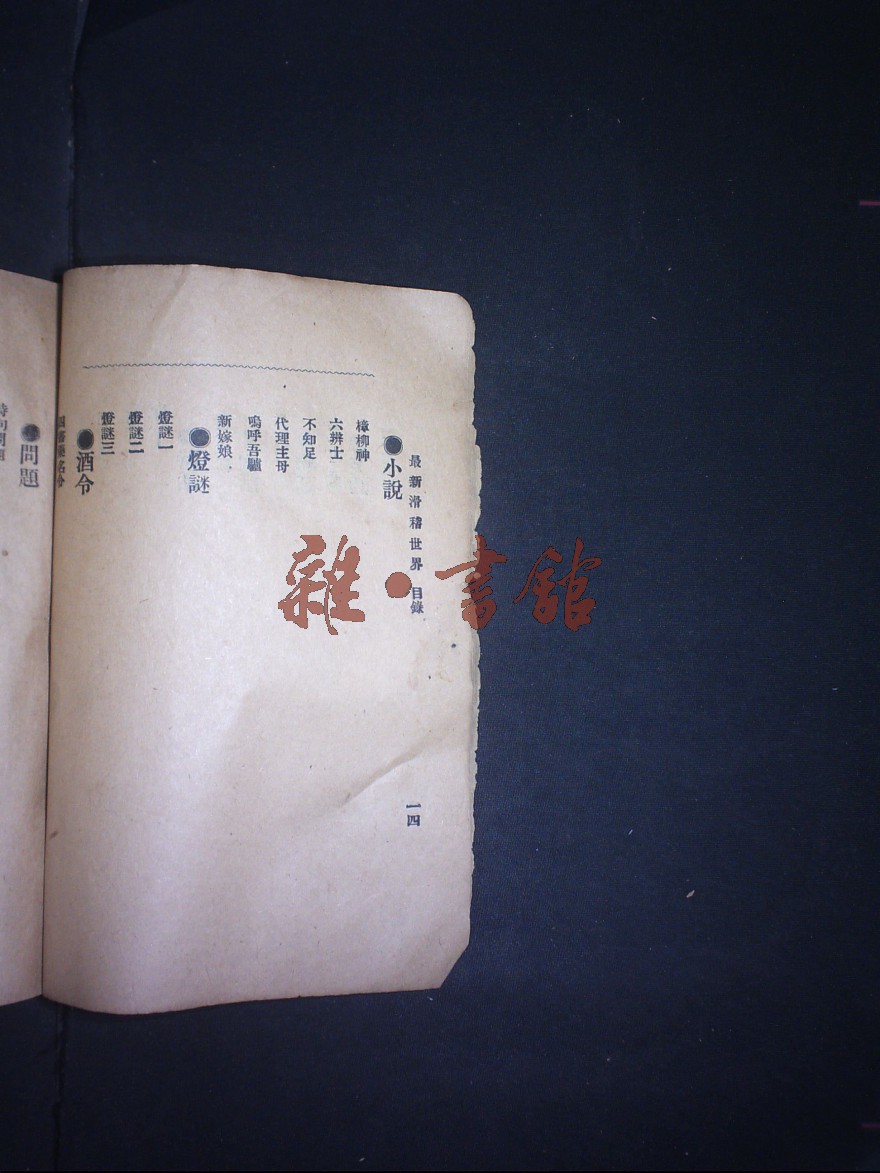 最新滑稽世界 目錄 一四
●小說
樟柳神
六辨士
不知足
代理主母
嗚呼吾驢
新嫁娘
●燈謎
燈謎一
燈謎二
燈謎三
●酒令
●問題
雜·書館